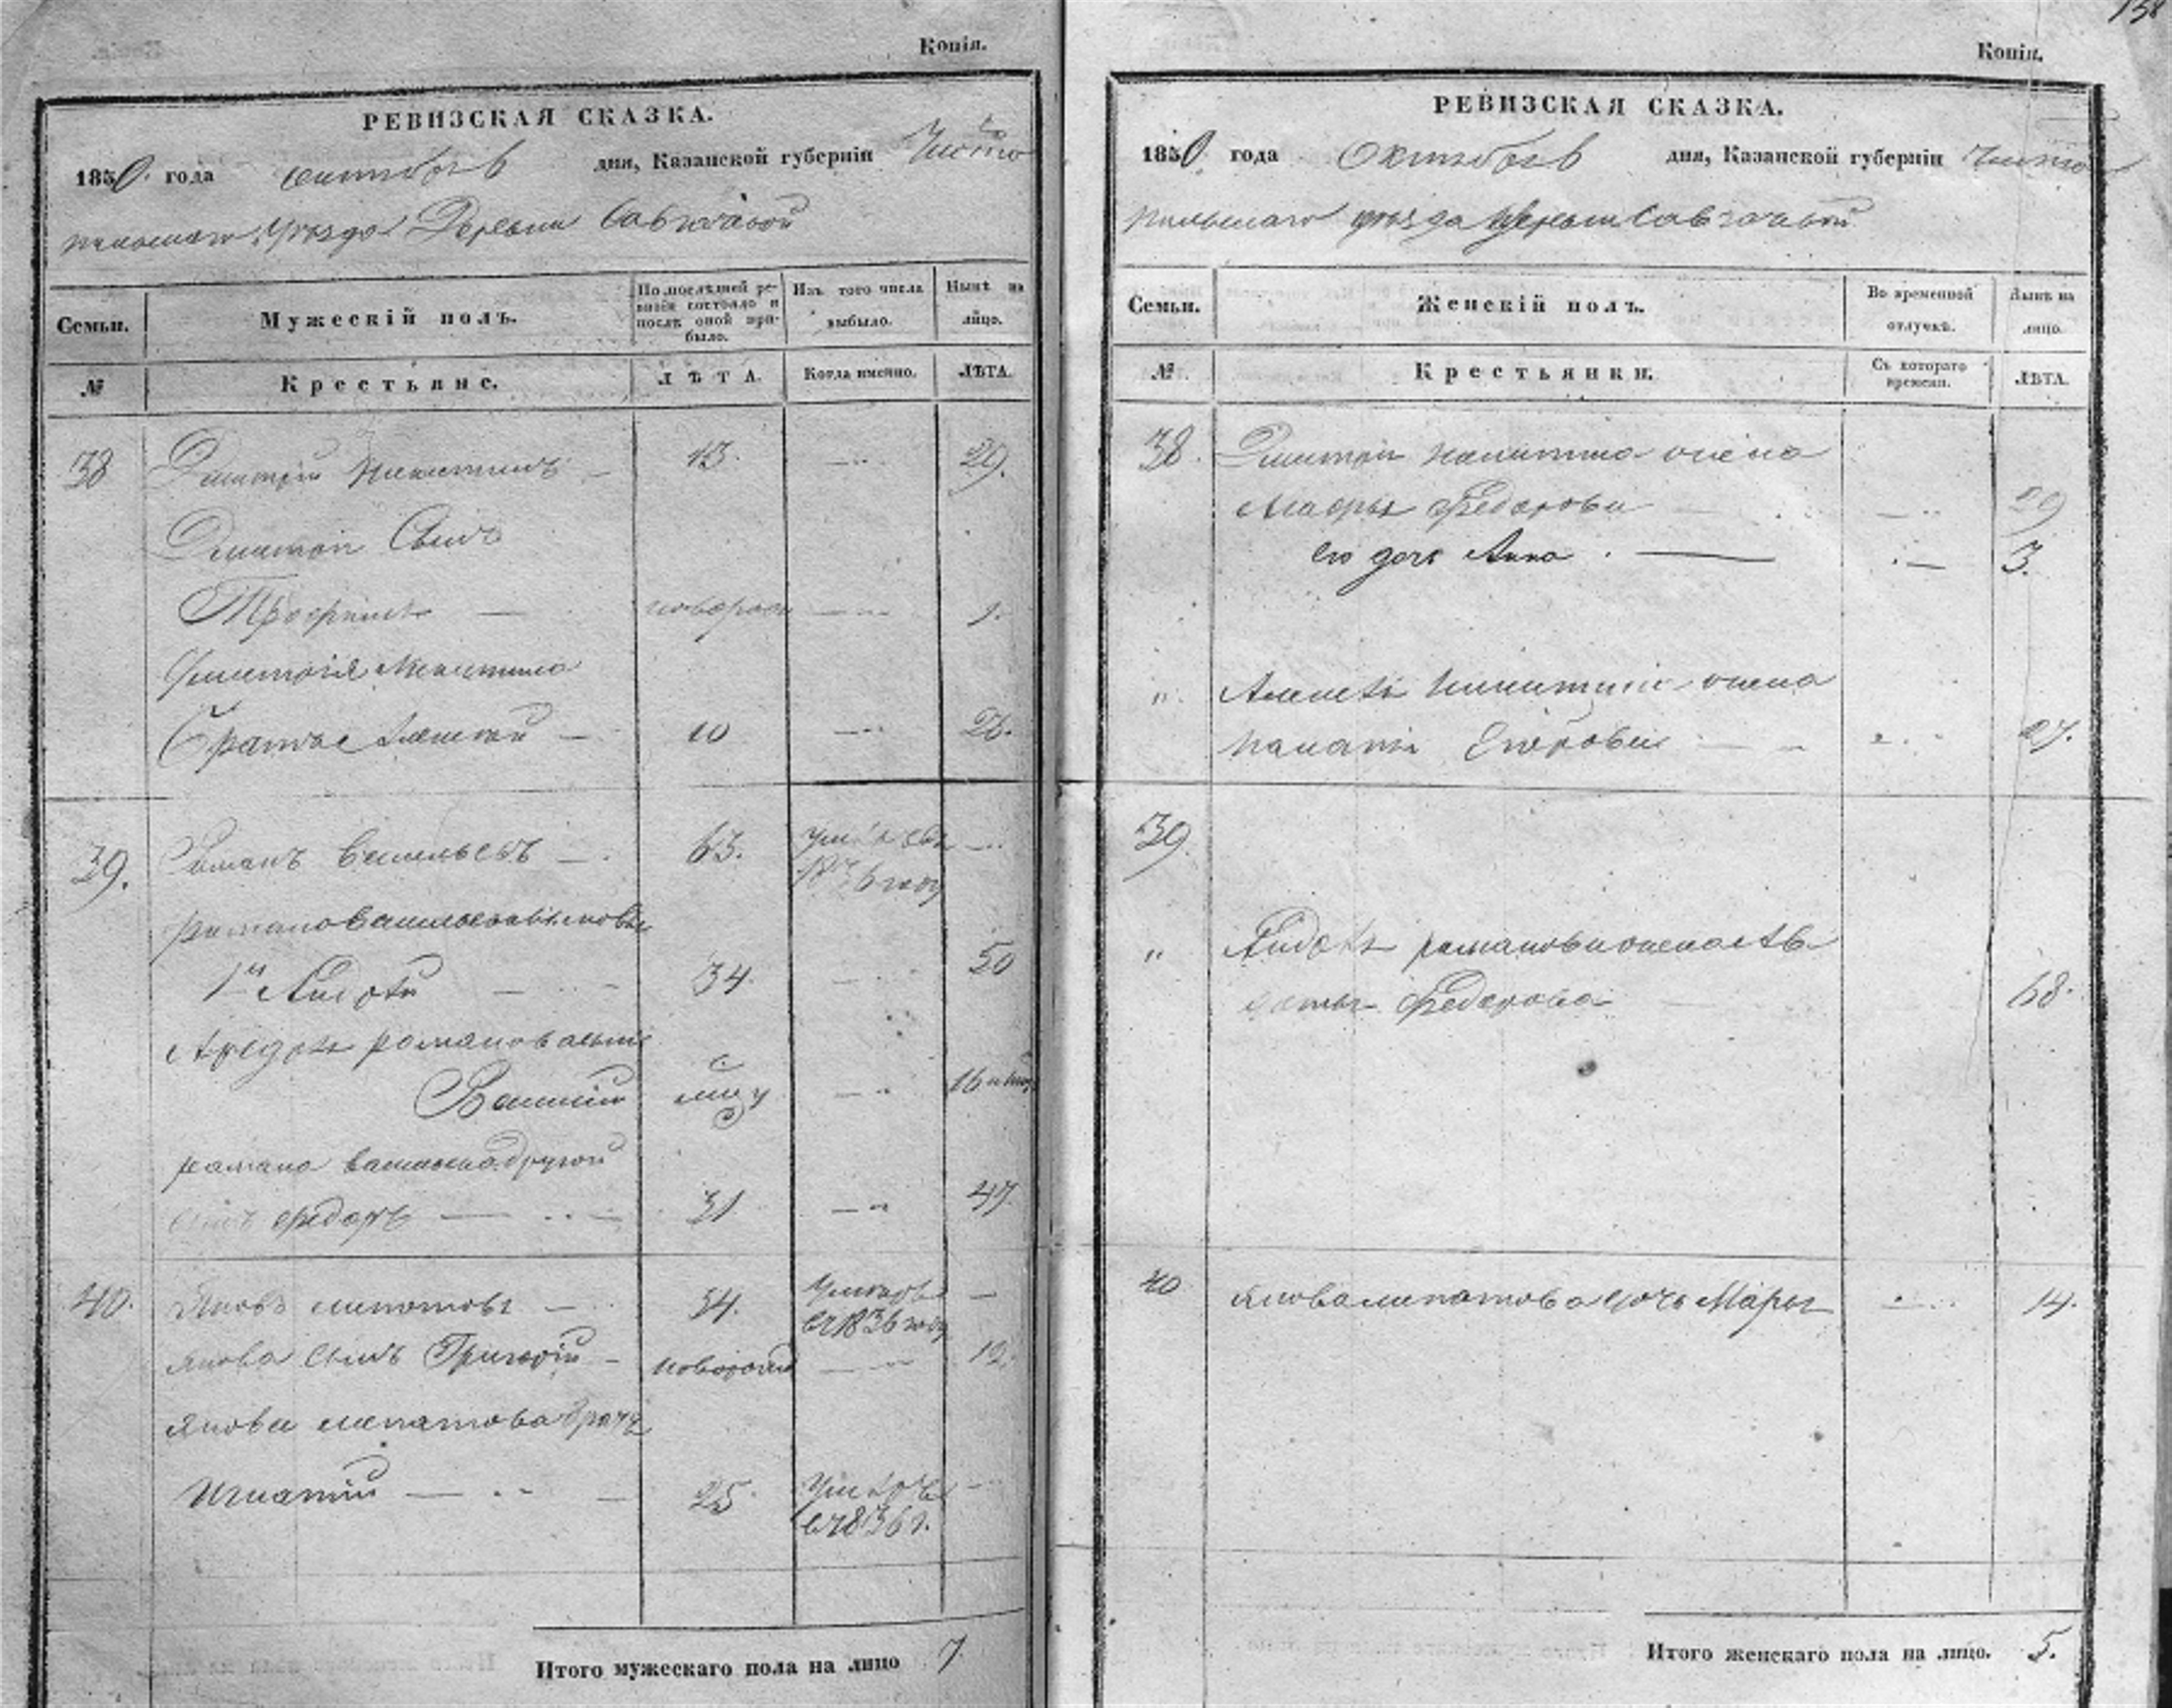 Копія.
РЕВИЗСКАЯ СКАЗКА.
1850. года октября дня, Казанской губерніи Чисто
польскаго Уезда Деревни
Семьи.
Мужескій полъ.
По послѣдней ре-
визіи состояло и
послѣ оной при-
было.
Изъ того числа
выбыло.
Нынѣ на
лицо.
№
Крестьяне.
ЛѢТА.
Когда именно.
ЛѢТА.
38
Дмитрій Никитинъ — 13. — 29.
Дмитрія Сынъ
Трофимъ — новорож — 1.
Дмитрія Никитина
братъ Алексей — 10 — 26.
39.
Романъ Васильевъ — 63. —
1836 году
Романа Васильева сыновья
1й 34 — 50
Романова сынъ
Василий —
Романа Васильева другой
сынъ Федоръ — 31 — 47.
40.
Яковъ Ипатовъ — 34. Умеръ —
въ 1836 году
Якова Сынъ Григорій — новорожд — 12.
Якова Ипатова братъ
Игнатий — 25. Умеръ —
в 1836 г.
Итого мужескаго пола на лицо 7
138
Копія.
РЕВИЗСКАЯ СКАЗКА.
1850. года Октября дня, Казанской губерніи Чисто
польскаго уезда Деревни
Семьи.
Женскій полъ.
Во временной
отлучкѣ.
Нынѣ на
лицо.
№
Крестьянки.
Съ котораго
времени.
ЛѢТА.
38.
Дмитрія Никитина жена
Марья Федорова — 29
его дочь Анна — 3.
" Алексея Никитина жена
Егорова — 27.
39.
" Романова жена
Федорова 68.
40
Якова Ипатова дочь Марья 14.
Итого женскаго пола на лицо. 5.